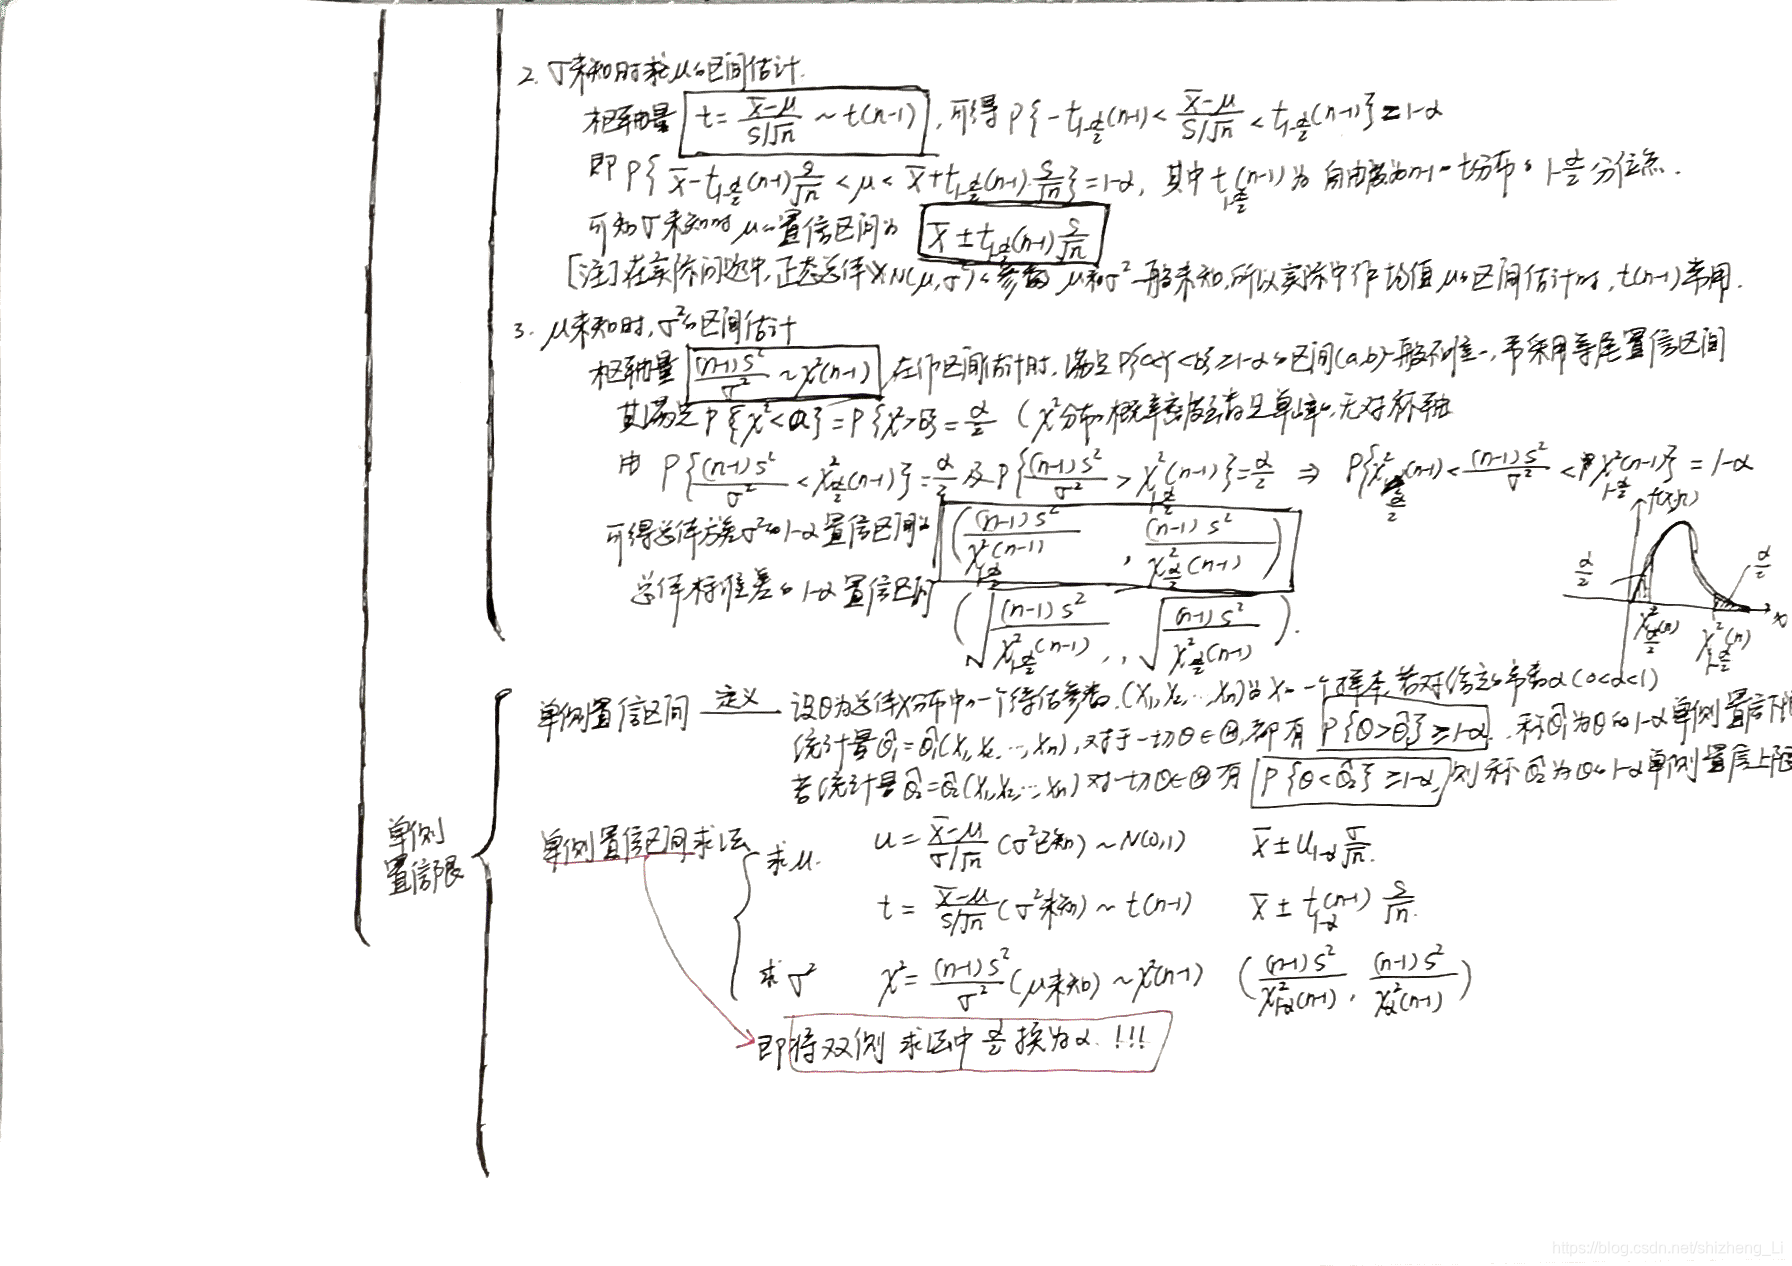 2. σ未知时求μ的区间估计.
枢轴量 t = (x̄-μ)/(S/√n) ~ t(n-1), 可得 P{-t_{1-α/2}(n-1) < (x̄-μ)/(S/√n) < t_{1-α/2}(n-1)} = 1-α
即 P{x̄-t_{1-α/2}(n-1) S/√n < μ < x̄+t_{1-α/2}(n-1) S/√n} = 1-α, 其中 t_{1-α/2}(n-1) 为 自由度为n-1的t分布的 1-α/2 分位点.
可知σ未知时 μ的置信区间为 x̄ ± t_{1-α/2}(n-1) S/√n
[注] 在实际问题中, 正态总体 X~N(μ, σ²)的参数 μ和σ²一般未知, 所以实际中作均值μ的区间估计时, t(n-1)常用.
3. μ未知时, σ²的区间估计
枢轴量 (n-1)S²/σ² ~ χ²(n-1) 在作区间估计时, 满足 P{a<χ²<b}=1-α的区间(a,b)一般不唯一, 常采用等尾置信区间
其满足 P{χ²<a} = P{χ²>b} = α/2 (χ²分布的概率密度函数只单峰, 无对称轴
由 P{(n-1)S²/σ² < χ²_{α/2}(n-1)} = α/2 及 P{(n-1)S²/σ² > χ²_{1-α/2}(n-1)} = α/2 ⇒ P{χ²_{α/2}(n-1) < (n-1)S²/σ² < χ²_{1-α/2}(n-1)} = 1-α
可得总体方差σ²的1-α置信区间为 ((n-1)S²/χ²_{1-α/2}(n-1), (n-1)S²/χ²_{α/2}(n-1))
总体标准差的1-α置信区间 (√((n-1)S²/χ²_{1-α/2}(n-1)), √((n-1)S²/χ²_{α/2}(n-1))).
α/2 α/2
χ²_{α/2}(n) χ²_{1-α/2}(n) x
单侧置信限
单侧置信区间 定义 设θ为总体X分布中的一个待估参数. (X₁,X₂,…,Xₙ)为X的一个样本, 若对给定的常数α(0<α<1)
统计量θ̂₁=θ̂₁(X₁,X₂,…,Xₙ), 对于一切θ∈Θ, 都有 P{θ>θ̂₁}≥1-α. 称θ̂₁为θ的1-α单侧置信下限
若统计量θ̂₂=θ̂₂(X₁,X₂,…,Xₙ)对一切θ∈Θ有 P{θ<θ̂₂}≥1-α, 则称θ̂₂为θ的1-α单侧置信上限
单侧置信区间求法
求μ. u = (x̄-μ)/(σ/√n) (σ²已知) ~ N(0,1) x̄ ± u_{1-α} σ/√n.
t = (x̄-μ)/(S/√n) (σ²未知) ~ t(n-1) x̄ ± t_{1-α}(n-1) S/√n.
求σ² χ² = (n-1)S²/σ² (μ未知) ~ χ²(n-1) ((n-1)S²/χ²_{1-α}(n-1), (n-1)S²/χ²_α(n-1))
即将双侧求法中 α/2 换为α. !!!
https://blog.csdn.net/shizheng_Li